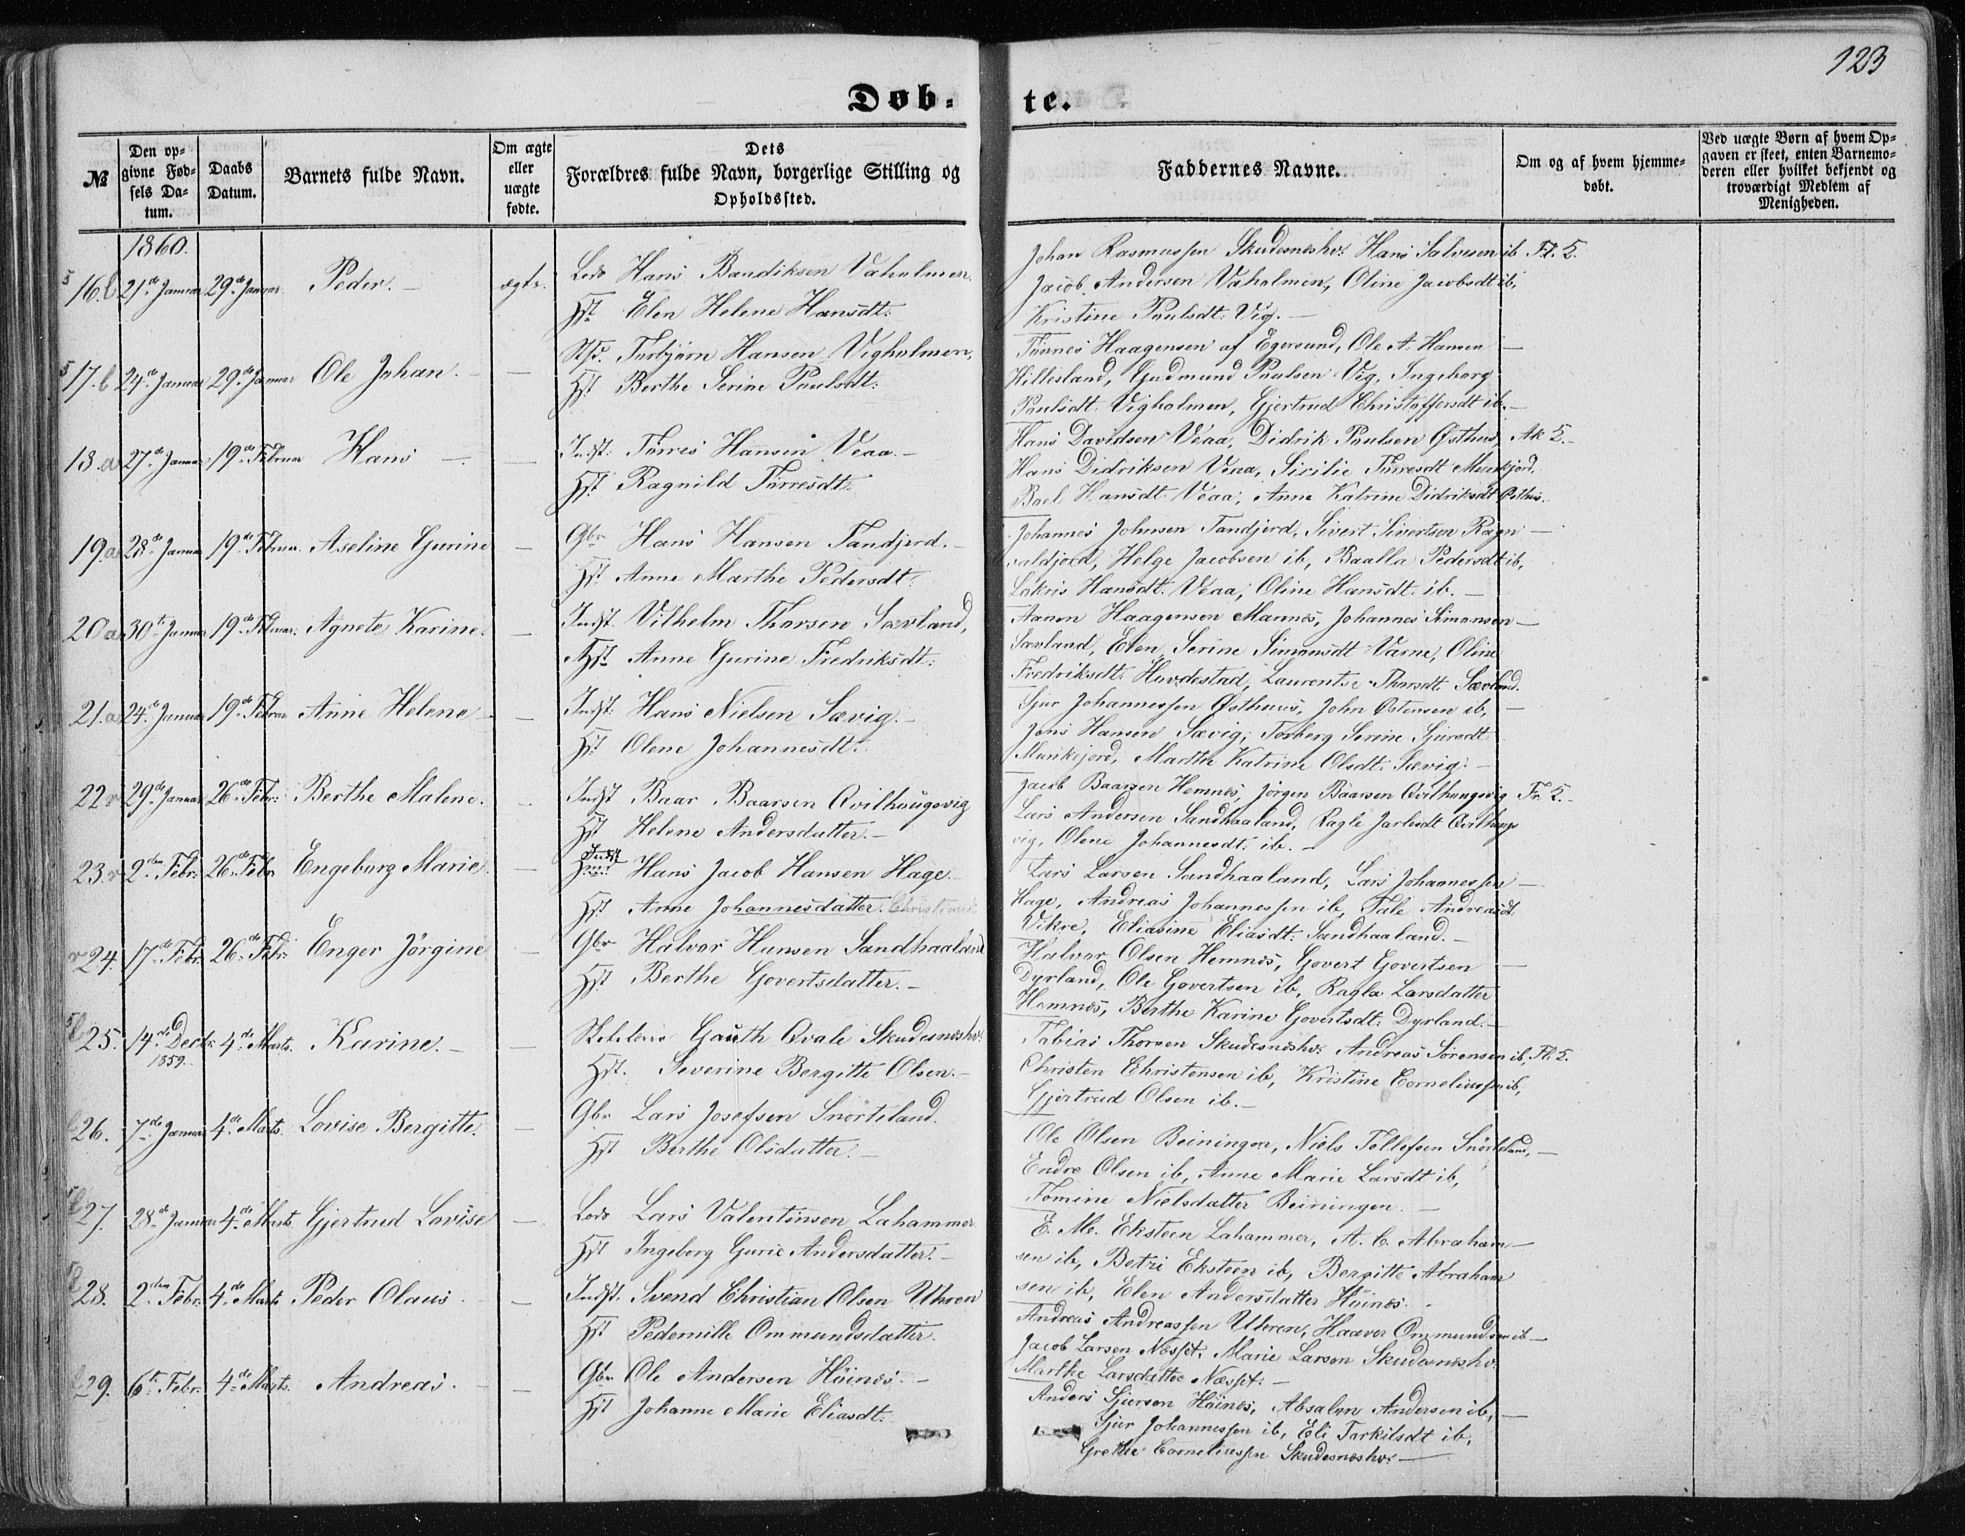 123
Døb-
te.
№
Den op-
givne Fød-
sels Da-
tum.
Daabs
Datum.
Barnets fulde Navn.
Om ægte
eller
uægte
fødte.
Dets
Forældres fulde Navn, borgerlige Stilling og
Opholdssted.
Faddernes Navne.
Om og af hvem hjemme-
døbt.
Ved uægte Børn af hvem Op-
gaven er skeet, enten Barnemo-
deren eller hvilket bekjendt og
troværdigt Medlem af
Menigheden.
1860.
16. b 21de Januar 29de Januar Peder. – ægte. Lods Hans Bendiksen Vaholmen.
Hst Elen Helene Hansdt:
Johan Rasmussen Skudesneshv: Hans Salvesen ib. Ft. 5.
Jacob Andersen Vaholmen, Oline Jacobsdt ib,
Kristine Paulsdt: Vig. –
17. b 24de Januar 29de Januar Ole Johan. – Torbjørn Hansen Vigholmen,
Hst Berthe Serine Paulsdt:
Tønnes Haagensen af Egersund, Ole A. Hansen –
Hillesland, Gudmund Paulsen Vig, Ingeborg
Paulsdt: Vigholmen, Gjertrud Christoffersdt ib. –
18. a 27de Januar 19de Februar Hans – Indst: Tørres Hansen Veaa. –
Hst Ragnild Tørresdt:
Hans Davidsen Veaa, Didrik Paulsen Østhus, Ak 5. –
Hans Didriksen Veaa, Sisilie Tørresdt Munkjord,
Hansdt: Veaa, Anne Katrine Didriksdt Østhus.
19. a 28de Januar 19de Februar Aseline Gurine – Gbr Hans Hansen Tandjord. –
Hst: Anne Marthe Pedersdt:
Johannes Johnsen Tandjord, Sivert Sivertsen Ragn –
valdjord, Helge Jacobsen ib, Baalla Pedersdt ib,
Lokris Hansdt: Veaa, Oline Hansdt: ib. –
20 a 30te Januar 19de Februar. Agnete Karine. – Indst. Vilhelm Thorsen Sævland,
Hst Anne Gurine Fredriksdt:
Aanon Haagensen Mannes, Johannes Simonsen –
Sævland, Elen Serine Simonsdt Varne, Oline
Fredriksdt: Hovdestad, Laurentse Thorsdt: Sævland.
21. a 24de Januar 19de Februar Anne Helene – – Indst: Hans Nielsen Sævig. –
Hst Olene Johannesdt:
Sjur Johannessen Østhuus, John Østensen ib, –
Jens Hansen Sævig, Torberg Serine Sjursdt
Munkejord, Marthe Katrine Olsdt: Sævig. –
22 r 29de Januar 26de Febr: Berthe Malene. – Indst Baar Baarsen Qvilhougsvig
Hst Helene Andersdatter. –
Jacob Baarsen Hemnes, Jørgen Baarsen Qvilhougsvig Fr. 5. –
Lars Andersen Sandhaaland, Ragle Jarlsdt Qvilhougs
vig, Olene Johannesdt: ib. –
23. r 2den Febr: 26de Febr Engeborg Marie. – Indst Hans Jacob Hansen Hage. –
Hst Anne Johannesdatter.
Lars Larsen Sandhaaland, Lars Johannessen –
Hage, Andreas Johannessen ib, Tale Andreasdt
Vikre, Eliasine Eliasdt: Sandhaaland. –
r 24. 17de Febr. 26de Febr: Enger Jørgine – Gbr Halvor Hansen Sandhaaland
Hst Berthe Govertsdatter. –
Halvor Olsen Hemnes, Govert Govertsen –
Dyrland, Ole Govertsen ib, Ragla Larsdatter
Hemnes, Berthe Karine Govertsdt: Dyrland. –
25. 14de Decbr. 4de Marts. Karine. – – Gauth Qvale Skudesneshv:
1859.
Hst. Severine Bergitte Olsen. –
Tobias Thorsen Skudesneshv: Andreas Sørensen ib, Ft. 5.
Christen Christensen ib, Kristine Corneliussen ib,
Gjertrud Olsen ib. –
26. 7de Januar 4de Marts. Lovise Bergitte. – Gbr Lars Josefsen Snørteland.
Hst Berthe Olsdatter. –
Ole Olsen Beiningen, Niels Tollefsen Snørteland, –
Endre Olsen ib, Anne Marie Larsdt ib,
Tomine Nielsdatter Beiningen. –
27. 28de Januar 4de Marts Gjertrud Lovise – Lods Lars Valentinsen Lahammer
Hst Ingeborg Gurie Andersdatter. –
E. M. Eksteen Lahammer, A. C. Abraham –
sen ib, Betzi Eksteen ib, Bergitte Abraham
sen ib, Elen Andersdatter Høines.
28. 2den Febr. 4de Marts Peder Olaus. – Indst. Svend Christian Olsen Uhren
Hst Pedernille Ommundsdatter.
Andreas Andreassen Uhren, Haaver Ommundsen ib –
Jacob Larsen Næsset. Marie Larsen Skudesneshv:
Marthe Larsdatter Næsset: –
29. 6te Febr. 4de Marts. Andreas. – – Gbr Ole Andersen Høines. –
Hst Johanne Marie Eliasdt:
Anders Sjursen Høines, Absalon Andersen ib, –
Sjur Johannessen ib, Eli Tarkilsdt ib,
Grethe Corneliussen Skudesneshv: –